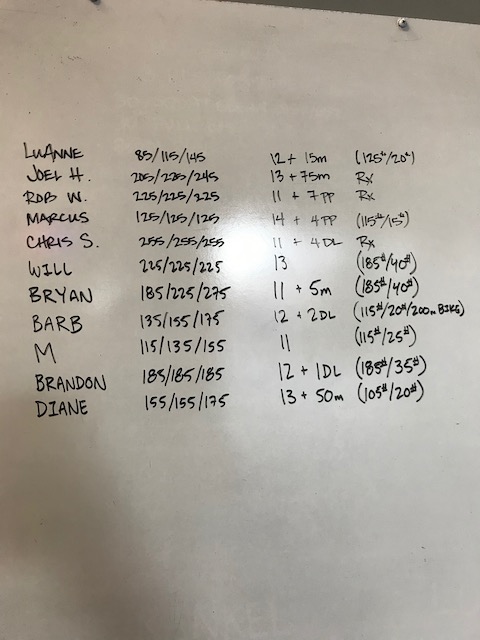 LUANNE 85/115/145 12 + 15m (125#/20#)
JOEL H. 205/225/245 13 + 75m Rx
ROB W. 225/225/225 11 + 7 PP Rx
MARCUS 125/125/125 14 + 4 PP (115#/15#)
CHRIS S. 255/255/255 11 + 4 DL Rx
WILL 225/225/225 13 (185#/40#)
BRYAN 185/225/275 11 + 5m (185#/40#)
BARB 135/155/175 12 + 2DL (115#/20#/200m BIKE)
M 115/135/155 11 (115#/25#)
BRANDON 185/185/185 12 + 1DL (185#/35#)
DIANE 155/155/175 13 + 50m (105#/20#)